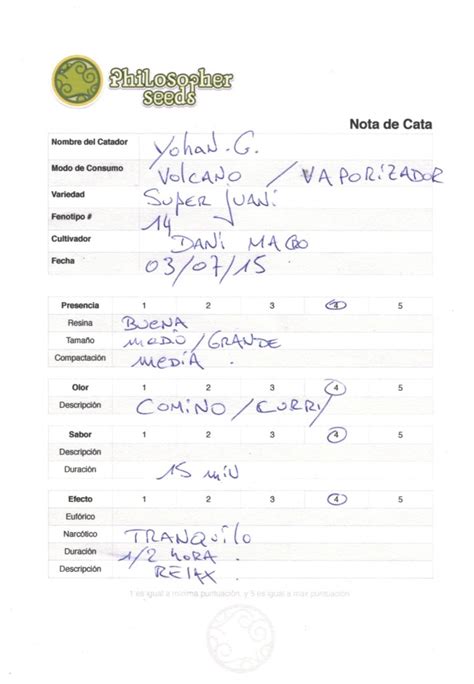 Philosopher
seeds
Nota de Cata
Nombre del Catador Yohan. G.
Modo de Consumo Volcano / VAPORIZADOR
Variedad Super Juani
Fenotipo # 14
Cultivador DANI MACRO
Fecha 03/07/15
Presencia 1 2 3 4 5
Resina BUENA
Tamaño / GRANDE
Compactación MEDIA.
Olor 1 2 3 4 5
Descripción COMINO / CURRY
Sabor 1 2 3 4 5
Descripción
Duración 15 min
Efecto 1 2 3 4 5
Eufórico
Narcótico TRANQUILO
Duración 1/2 HORA.
Descripción RELAX.
1 es igual a mínima puntuación, y 5 es igual a max puntuación